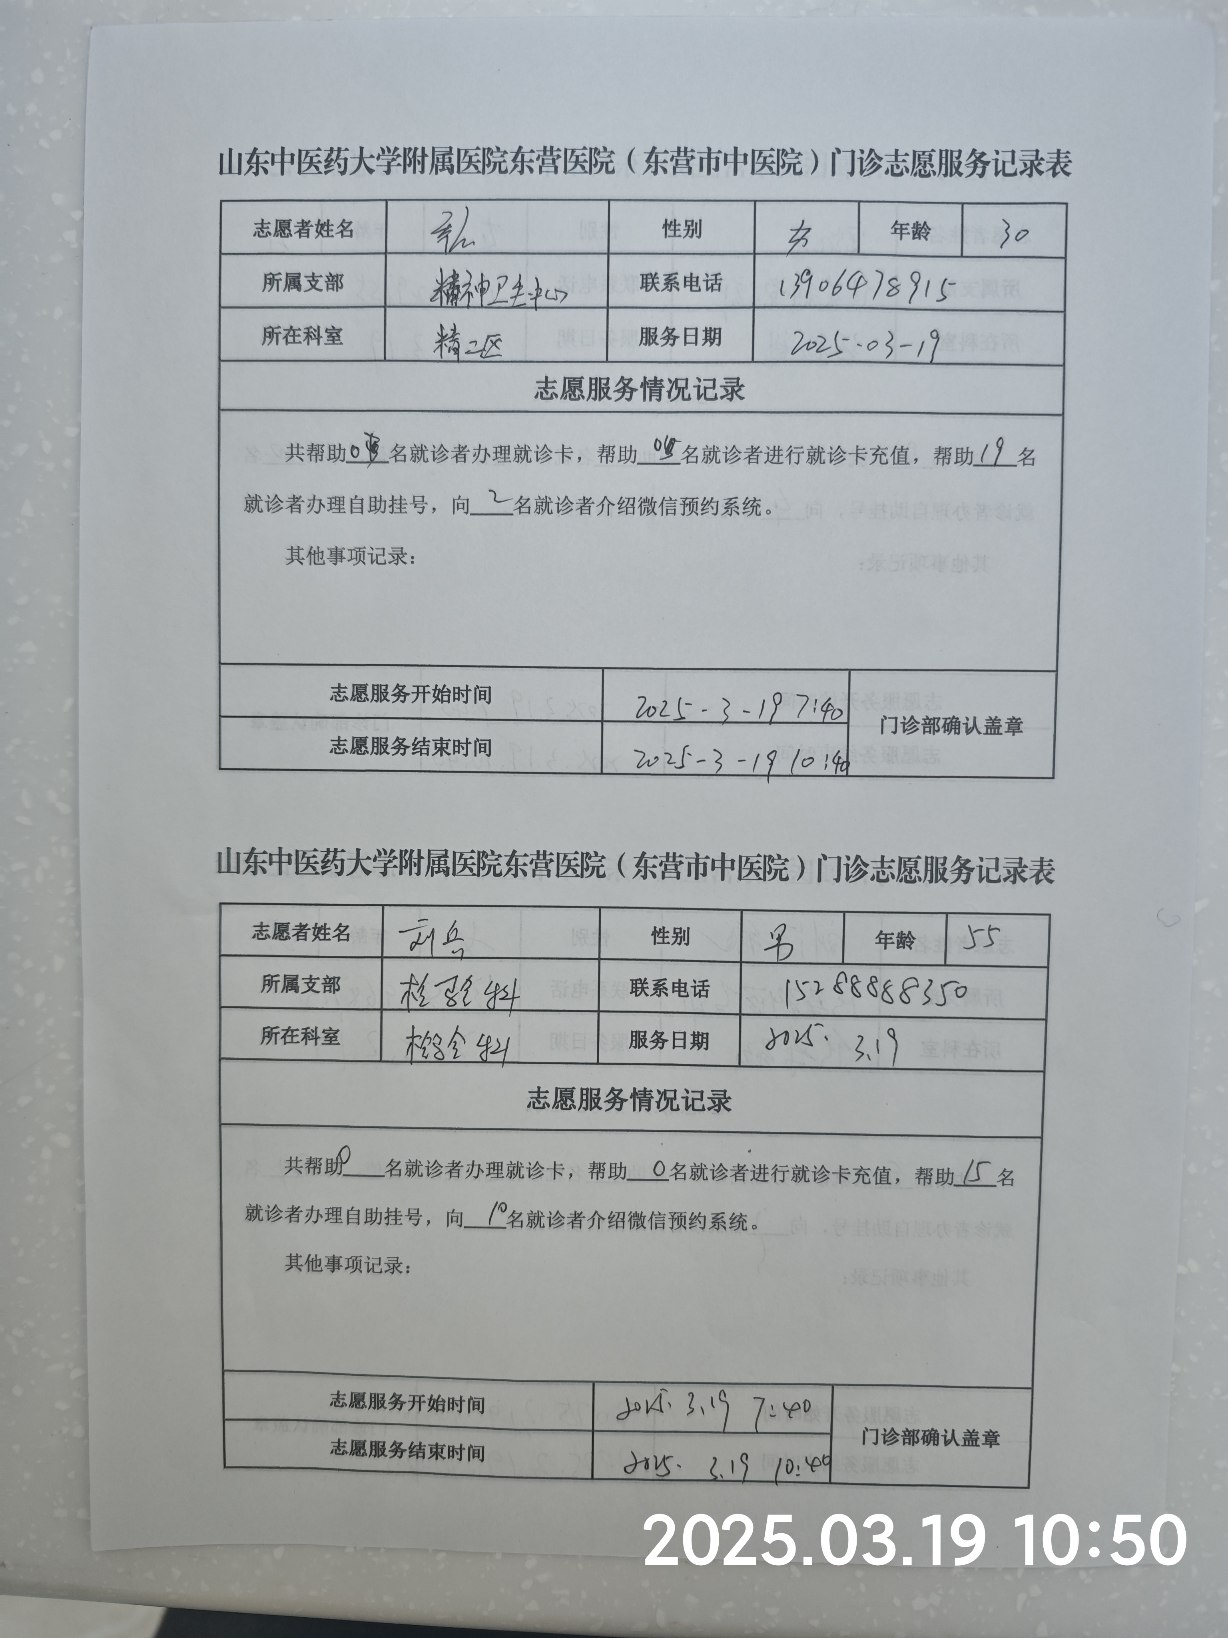 山东中医药大学附属医院东营医院（东营市中医院）门诊志愿服务记录表
志愿者姓名 性别 女 年龄 30
所属支部 精神卫生中心 联系电话 13906478915
所在科室 精二区 服务日期 2025-03-19
志愿服务情况记录
共帮助0名就诊者办理就诊卡，帮助0名就诊者进行就诊卡充值，帮助19名
就诊者办理自助挂号，向2名就诊者介绍微信预约系统。
其他事项记录：
志愿服务开始时间 2025-3-19 7:40
门诊部确认盖章
志愿服务结束时间 2025-3-19 10:40
山东中医药大学附属医院东营医院（东营市中医院）门诊志愿服务记录表
志愿者姓名 刘兵 性别 男 年龄 55
所属支部 检验科 联系电话 15288888350
所在科室 检验科 服务日期 2025. 3.19
志愿服务情况记录
共帮助0名就诊者办理就诊卡，帮助0名就诊者进行就诊卡充值，帮助15名
就诊者办理自助挂号，向10名就诊者介绍微信预约系统。
其他事项记录：
志愿服务开始时间 2025. 3.19 7:40
门诊部确认盖章
志愿服务结束时间 2025. 3.19 10:40
2025.03.19 10:50